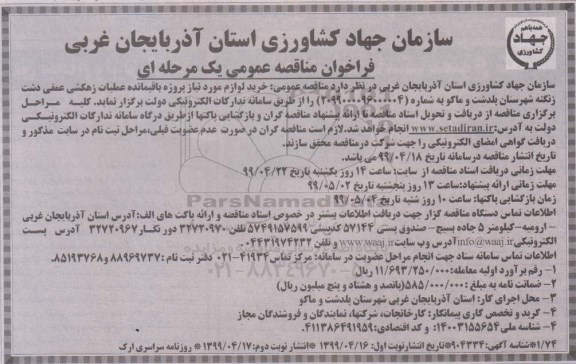 همه با هم
جهاد
کشاورزی
سازمان جهاد کشاورزی استان آذربایجان غربی
فراخوان مناقصه عمومی یک مرحله ای
سازمان جهاد کشاورزی استان آذربایجان غربی در نظر دارد مناقصه عمومی: خرید لوازم مورد نیاز پروژه باقیمانده عملیات زهکشی عمقی دشت
زنگنه شهرستان پلدشت و ماکو به شماره (۲۰۹۹۰۰۰۰۹۶۰۰۰۰۰۴) را از طریق سامانه تدارکات الکترونیکی دولت برگزار نماید. کلیه مراحل
برگزاری مناقصه از دریافت و تحویل اسناد مناقصه تا ارائه پیشنهاد مناقصه گران و بازگشایی پاکتها از طریق درگاه سامانه تدارکات الکترونیکی
دولت به آدرس: www.setadiran.ir انجام خواهد شد. لازم است مناقصه گران در صورت عدم عضویت قبلی، مراحل ثبت نام در سایت مذکور و
دریافت گواهی امضای الکترونیکی را جهت شرکت در مناقصه محقق سازند.
تاریخ انتشار مناقصه در سامانه تاریخ ۹۹/۰۴/۱۸ می باشد.
مهلت زمانی دریافت اسناد مناقصه از سایت: ساعت ۱۴ روز یکشنبه تاریخ ۹۹/۰۴/۲۲
مهلت زمانی ارائه پیشنهاد: ساعت ۱۳ روز پنجشنبه تاریخ ۹۹/۰۵/۰۲
زمان بازگشایی پاکتها: ساعت ۱۰ روز شنبه تاریخ ۹۹/۰۵/۰۴
اطلاعات تماس دستگاه مناقصه گزار جهت دریافت اطلاعات بیشتر در خصوص اسناد مناقصه و ارائه پاکت های الف: آدرس استان آذربایجان غربی
- ارومیه - کیلومتر ۵ جاده بسیج - صندوق پستی ۵۷۱۴۴ کدپستی ۵۷۴۹۱۵۷۵۹۹ تلفن ۳۲۷۲۰۹۷۰ دورنگار ۳۲۷۲۰۹۶۷ آدرس پست
الکترونیکی info@waaj.ir آدرس وب سایت www.waaj.ir و تلفن ۰۴۴۳۱۹۷۴۲۳۲
اطلاعات تماس سامانه ستاد جهت انجام مراحل عضویت در سامانه: مرکز تماس ۴۱۹۳۴-۰۲۱ دفتر ثبت نام: ۸۸۹۶۹۷۳۷ و ۸۵۱۹۳۷۶۸.
۱- رقم برآورد اولیه معامله: ۱۱/۶۹۳/۲۵۰/۰۰۰ ریال
۲- ضمانت نامه به مبلغ: ۵۸۵/۰۰۰/۰۰۰ (پانصد و هشتاد و پنج میلیون ریال)
۳- محل اجرای کار: استان آذربایجان غربی شهرستان پلدشت و ماکو
۴- گرید و تخصص کاری پیمانکار: کارخانجات، شرکتها، نمایندگان و فروشندگان مجاز
۵- شناسه ملی ۱۴۰۰۳۱۵۵۶۵۴ و کد اقتصادی: ۴۱۱۳۸۶۴۹۱۹۵۹
۱/۷۴ *شناسه آگهی: ۹۰۴۳۳۴ *تاریخ انتشار نوبت اول: ۱۳۹۹/۰۴/۱۶ *انتشار نوبت دوم: ۱۳۹۹/۰۴/۱۷ * روزنامه سراسری ارک
ParsNamadData
۰۲۱-۸۸۳۴۹۶۷۰